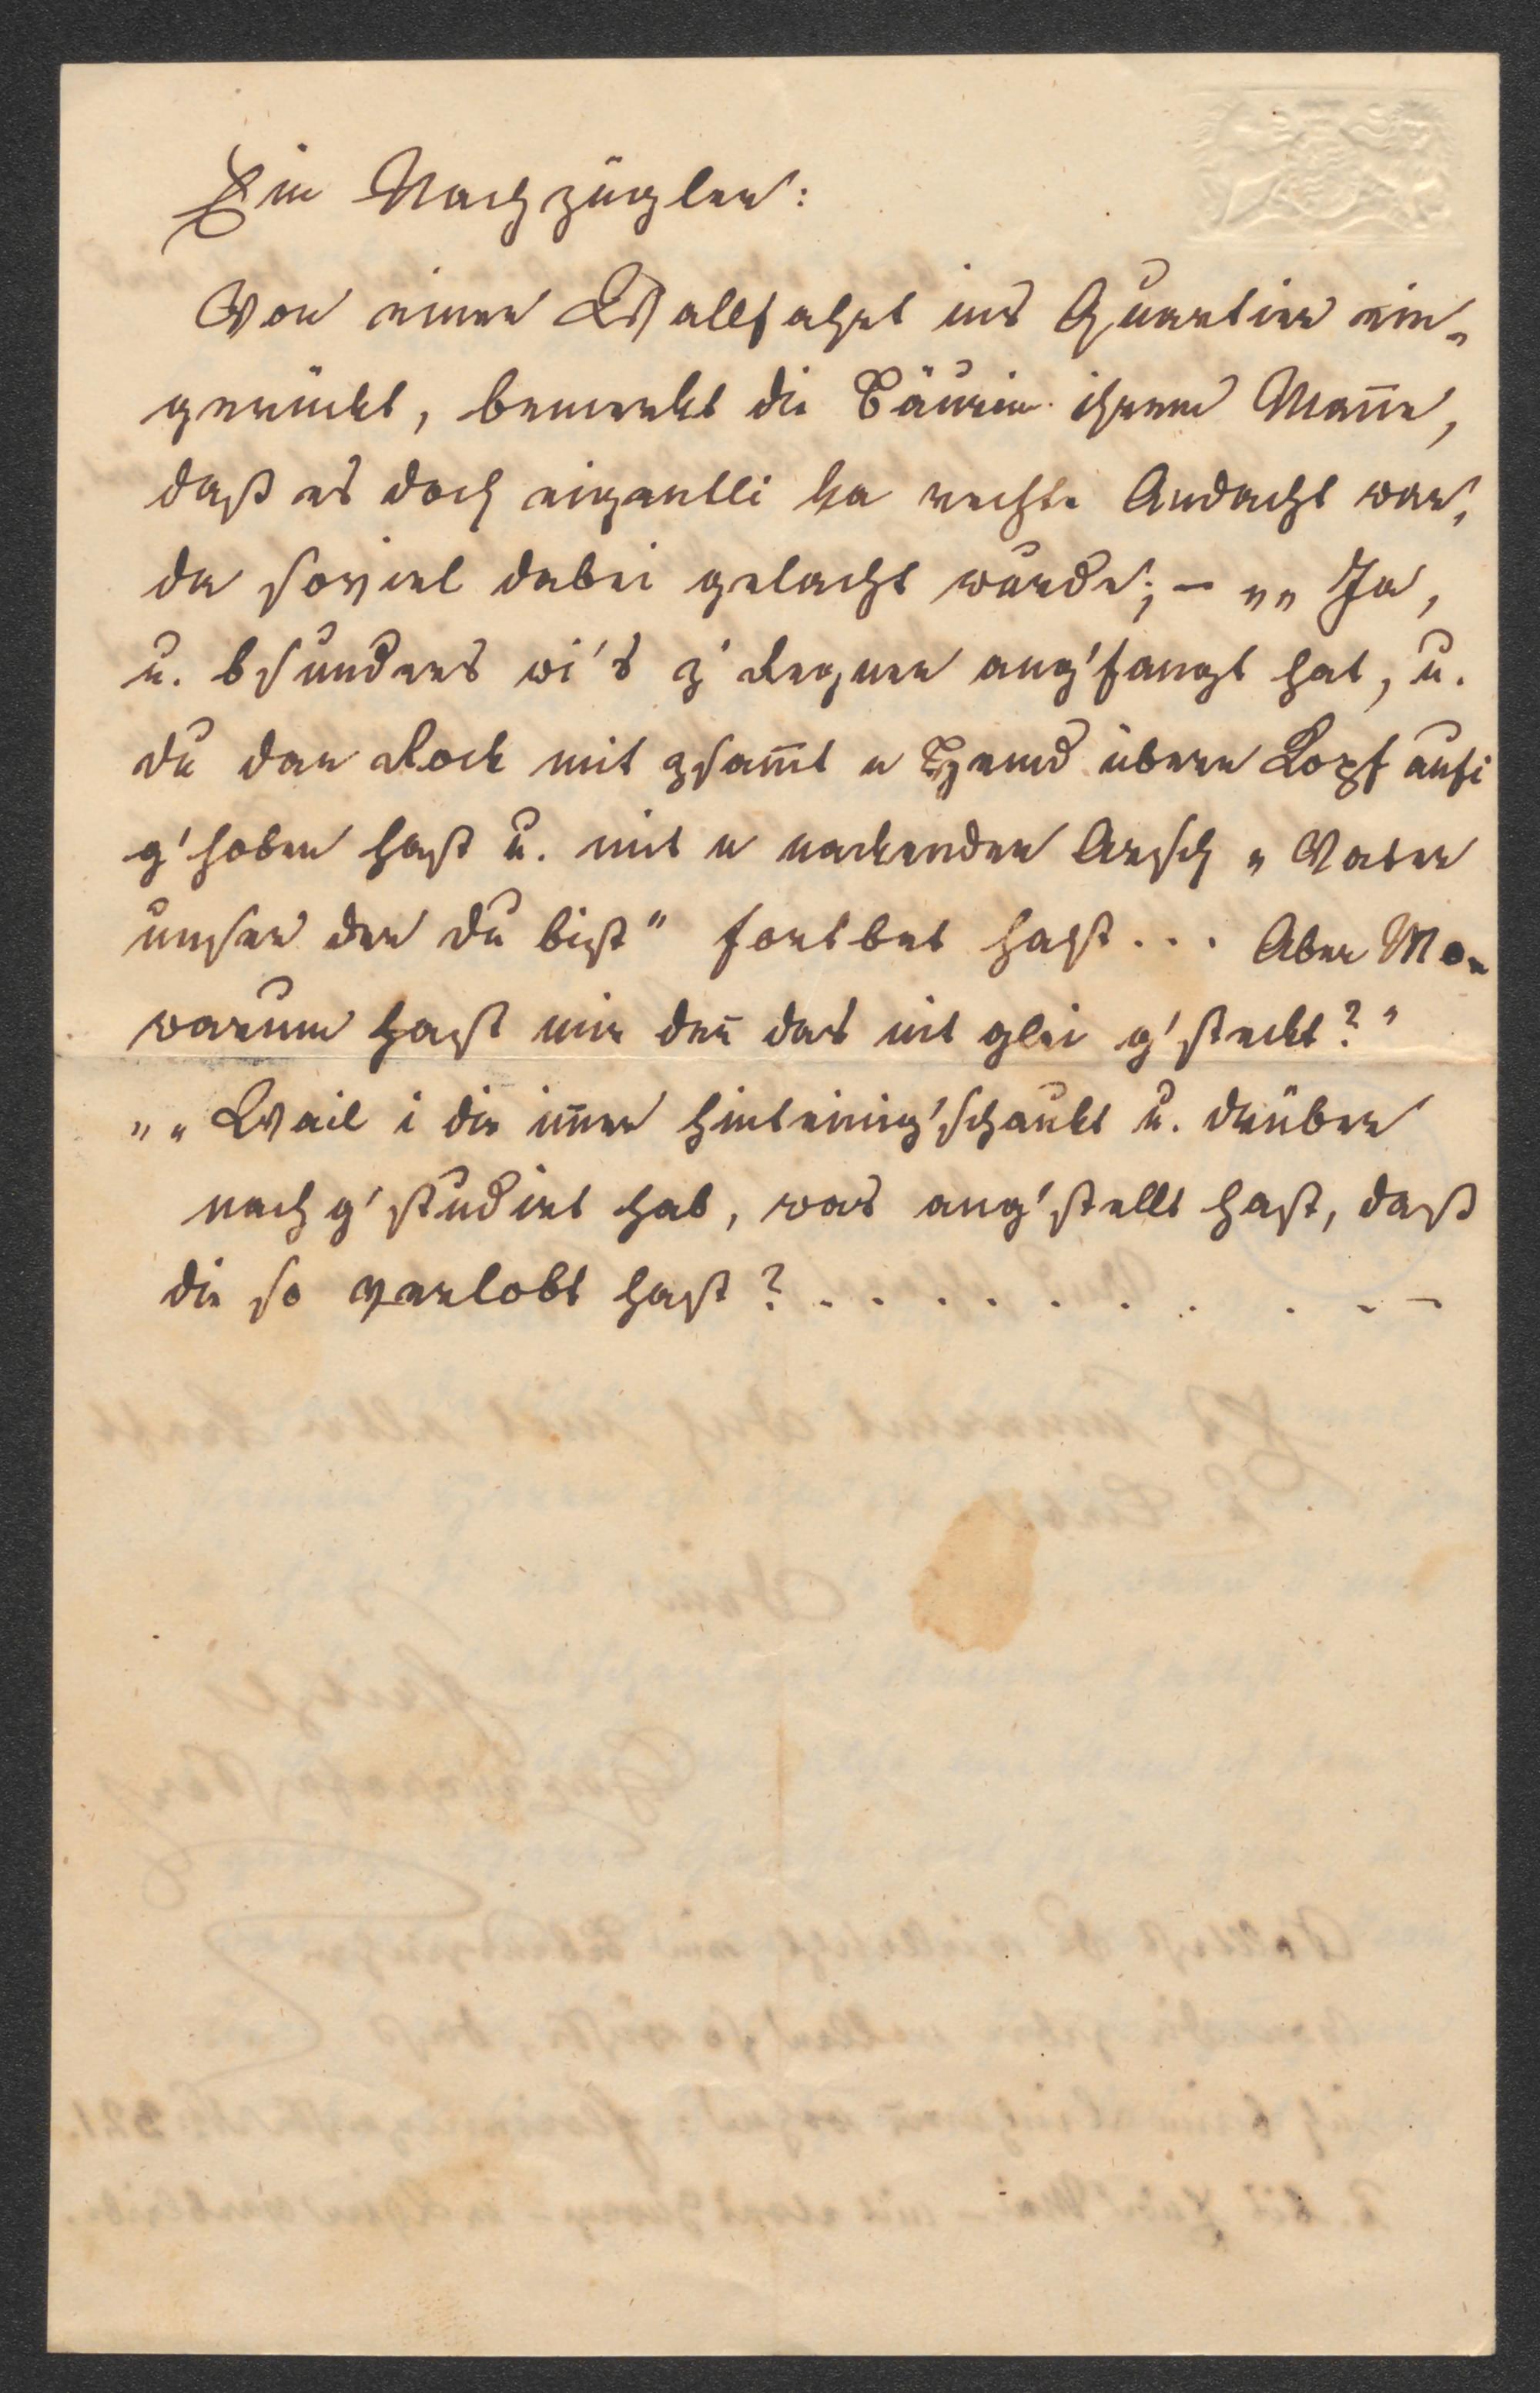 Ein Nachzügler:
Von einer Wallfahrt ins Quartier ein-
gerückt, bemerkt die Bäurin ihrem Manne,
daß es doch eigentli ka rechte Andacht war,
da soviel dabei gelacht wurde; – „„ Ja,
u. bsunders wi's z' Regnen ang'fangt hat, u.
du den Rock mit zsam̅t n Hemd übern Kopf aufi
g'hoben hast u. mit n nackenden Arsch „ Vater
unser der du bist" fortbet hast... Aber Mo-
warum hast mir den̅ das nit glei g'steckt?"
„„ Weil i dir im̅er hinteinig'schaukt u. drüber
nach g'studirt hab, was ang'stellt hast, daß
di so verlobt hast? . . . . . . . . . . –